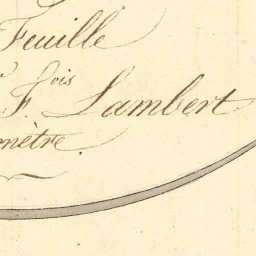 Feuille
F.ois Lambert
mètre.